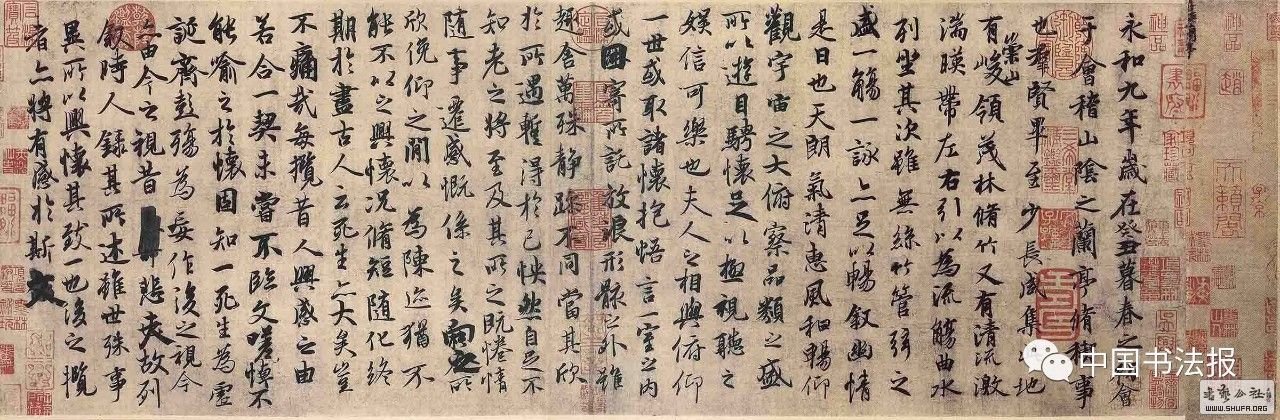 永和九年歲在癸丑暮春之初會
于會稽山陰之蘭亭脩稧事
也羣賢畢至少長咸集此地
有崇山峻領茂林脩竹又有清流激
湍暎帶左右引以為流觴曲水
列坐其次雖無絲竹管弦之
盛一觴一詠亦足以暢敘幽情
是日也天朗氣清惠風和暢仰
觀宇宙之大俯察品類之盛
所以遊目騁懷足以極視聽之
娛信可樂也夫人之相與俯仰
一世或取諸懷抱悟言一室之內
或因寄所託放浪形骸之外雖
趣舍萬殊靜躁不同當其欣
於所遇蹔得於己怏然自足不
知老之將至及其所之既惓情
隨事遷感慨係之矣向之所
欣俛仰之閒以為陳迹猶不
能不以之興懷況脩短隨化終
期於盡古人云死生亦大矣豈
不痛哉每攬昔人興感之由
若合一契未嘗不臨文嗟悼不
能喻之於懷固知一死生為虛
誕齊彭殤為妄作後之視今
亦由今之視昔悲夫故列
敘時人錄其所述雖世殊事
異所以興懷其致一也後之攬
者亦將有感於斯文
中国书法报
WWW.SHUFA.ORG